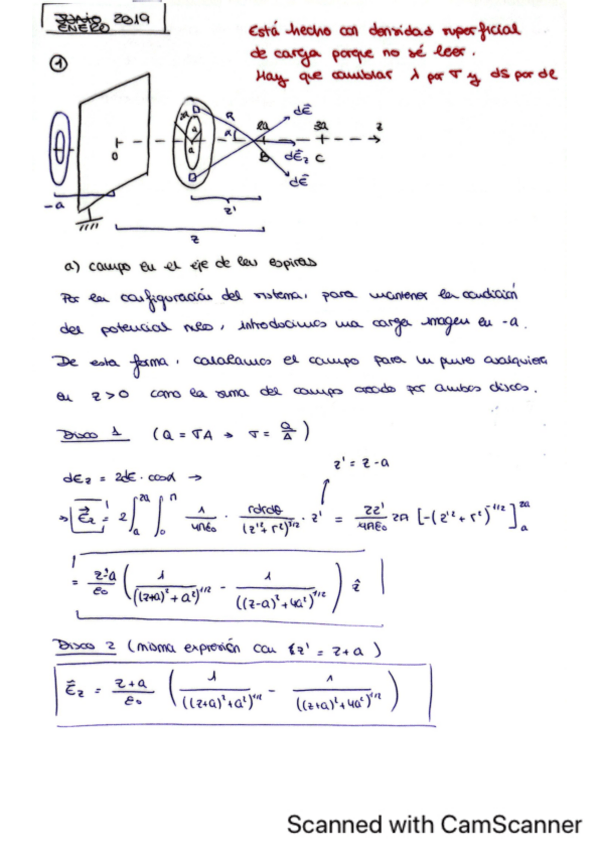 JUNIO 2019
ENERO
Está hecho con densidad superficial
de carga porque no sé leer.
Hay que cambiar λ por σ y ds por dl
①
-a
0
2a
a
a
R
α
2a
B
3a
C
z
dE⃗
dE⃗z
dE⃗
z'
z
a) campo en el eje de las espiras
Por la configuración del sistema, para mantener la condición
del potencial nulo, introducimos una carga imagen en -a.
De esta forma, calculamos el campo para un punto cualquiera
en z>0 como la suma del campo creado por ambos discos.
Disco 1 (Q = σA → σ = Q/A)
z' = z-a
dEz = 2dE · cosα →
→ E⃗z = 2 ∫_a^{2a} ∫_0^π 1/4πε₀ · rdrdθ/(z'²+r²)^{3/2} · z' = 2z'/4πε₀ 2π [-(z'²+r²)^{-1/2}]_a^{2a}
= z-a/ε₀ ( λ/((z+a)²+a²)^{1/2} - λ/((z-a)²+4a²)^{1/2} ) ẑ
Disco 2 (misma expresión con z' = z+a)
E⃗z = z+a/ε₀ ( λ/((z+a)²+a²)^{1/2} - λ/((z+a)²+4a²)^{1/2} )
Scanned with CamScanner